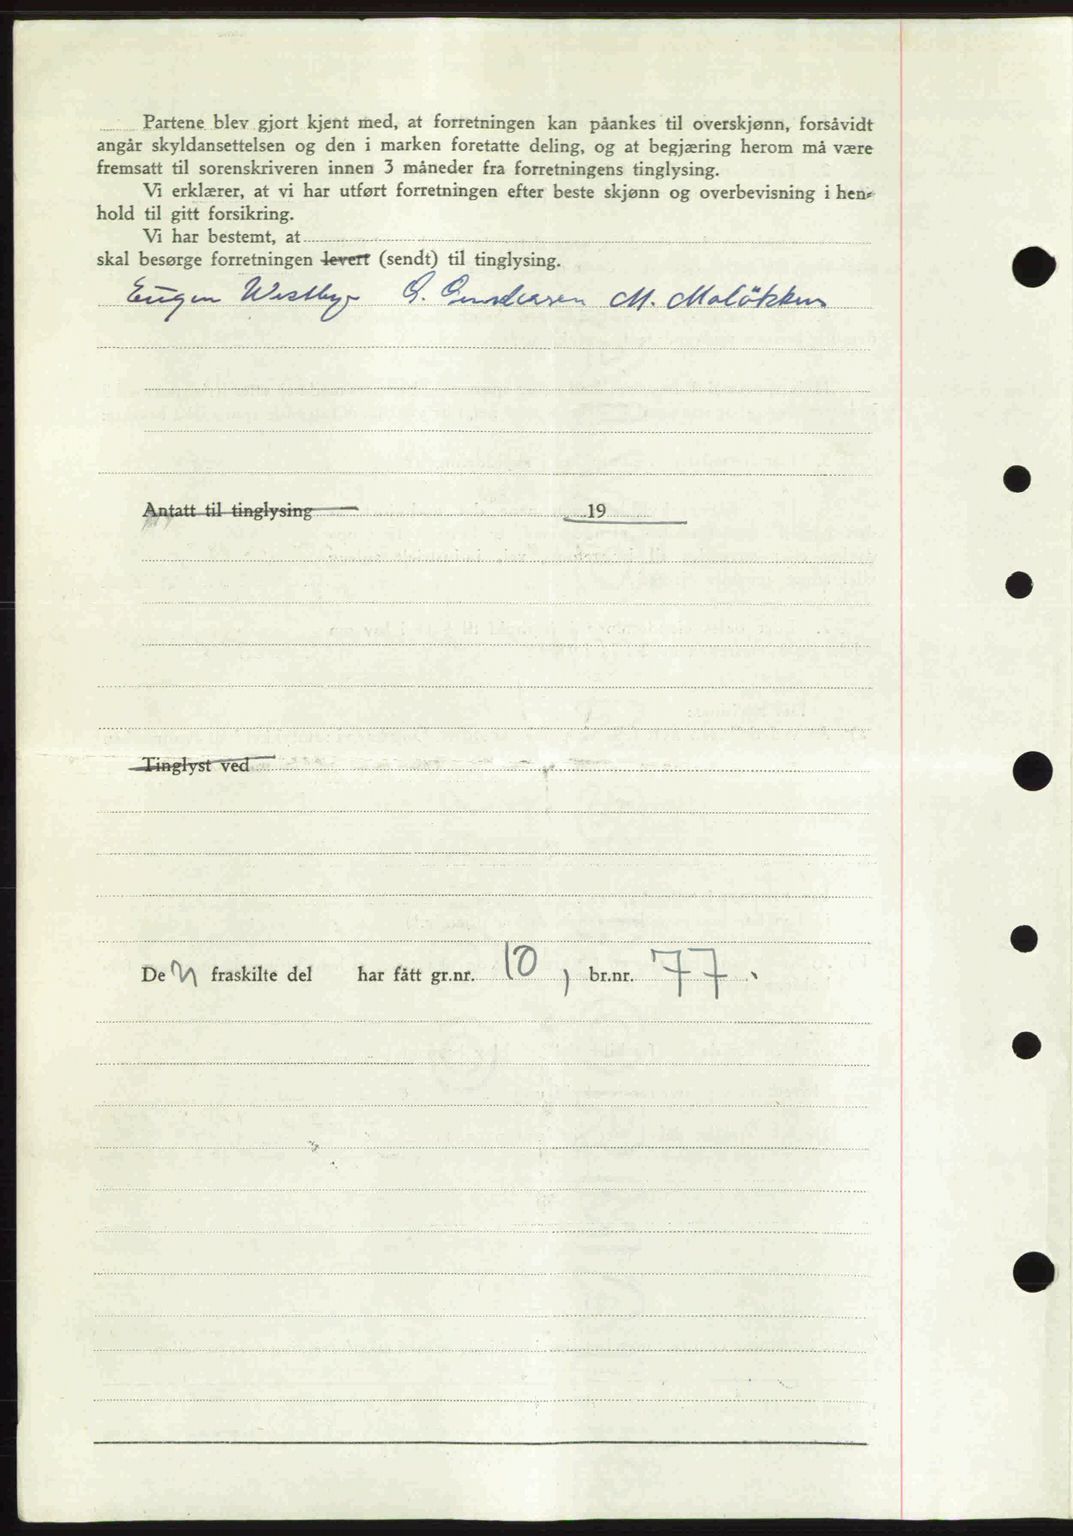 Partene blev gjort kjent med, at forretningen kan påankes til overskjønn, forsåvidt
angår skyldansettelsen og den i marken foretatte deling, og at begjæring herom må være
fremsatt til sorenskriveren innen 3 måneder fra forretningens tinglysing.
Vi erklærer, at vi har utført forretningen efter beste skjønn og overbevisning i hen-
hold til gitt forsikring.
Vi har bestemt, at
skal besørge forretningen levert (sendt) til tinglysing.
Eugen Westbye G. Gundersen M. Moløkken
Antatt til tinglysing 19
Tinglyst ved
Den fraskilte del har fått gr.nr. 10, br.nr. 77.